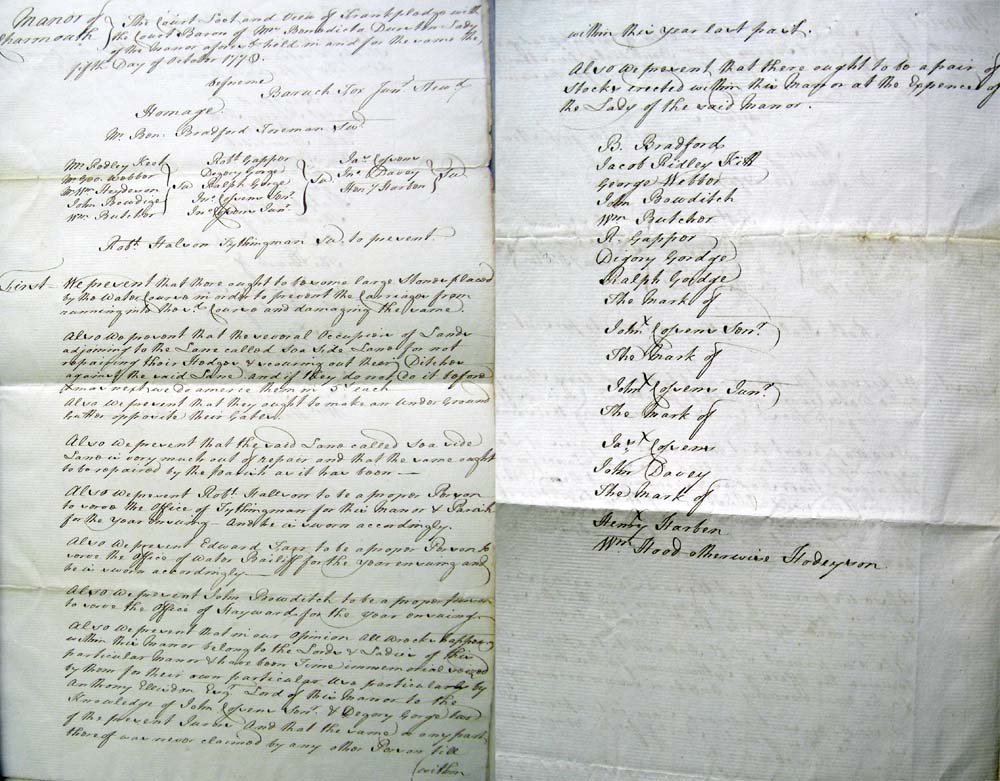 Manor of
Charmouth
The Court Leet and View of Frankpledge with
the Court Baron of Mrs Benedicta Durston Lady
of the Manor afores.d held in and for the same the
fifth Day of October 1778.
Before me
Baruch Fox Jun.r Stew.d
Homage
Mr Ben: Bradford Foreman Sw.n
Mr Podley Keet
Mr Geo: Webber
Mr Wm Heyderson
John Bowdige
Wm Butcher
Sw
Robt Gappor
Degory Gorge
Ralph Gorge
Jn.o Cosens Sen.r
Jn.o Cosens Jun.r
Sw
Ja.s Cosens
Jn.o Davey
Hen.y Harben
Sw
Rob.t Halson Tythingman Sw. to present.
First We present that there ought to be some large Stones placed
by the Water Course in order to prevent the Carriages from
running into the s.d Course and damaging the same.
Also we present that the several Occupiers of Lands
adjoining to the Lane called Sea Side Lane for not
repairing their Hedges & scouring out their Ditches
against the said Lane and if they do not Do it before
Xmas next we do amerce them in 5.s each
Also we present that they ought to make an Under Ground
Gutter opposite their Gates.
Also We present that the said Lane called Sea side
Lane is very much out of repair and that the same ought
to be repaired by the Parish as it has been
Also We present Rob.t Hallson to be a proper Person
to serve the Office of Tythingman for this Manor & Parish
for the Year ensuing And he is sworn accordingly.
Also We present Edward Farr to be a proper Person to
serve the Office of Water Bailiff for the Year ensuing and
he is sworn accordingly
Also We present John Bowditch to be a proper person
to serve the Office of Hayward for the Year ensuing
Also We present that in our Opinion All Wrecks happen
within this Manor belong to the Lords & Ladies of this
particular Manor & have been Time immemorial
by them for their own particular use particularly by
Anthony Ellesdon Esq.r Lord of this Manor to the
Knowledge of John Cosens Sen.r & Degory Gorge two
of the present Jurors And that the same or any part
thereof was never claimed by any other Person till
within
within this year last past.
Also We present that there ought to be a pair of
Stocks erected within this Manor at the Expence of
the Lady of the said Manor.
B. Bradford
Jacob Ridley Kitt
George Webber
John Bowditch
Wm Butcher
R. Gappor
Degory Gordge
Ralph Gordge
The Mark of
John X Cosens Sen.r
The Mark of
John X Cosens Jun.r
The Mark of
Jas X Cosens
John Davey
The Mark of
Henry X Harben
Wm Hood otherwise Hodeyson